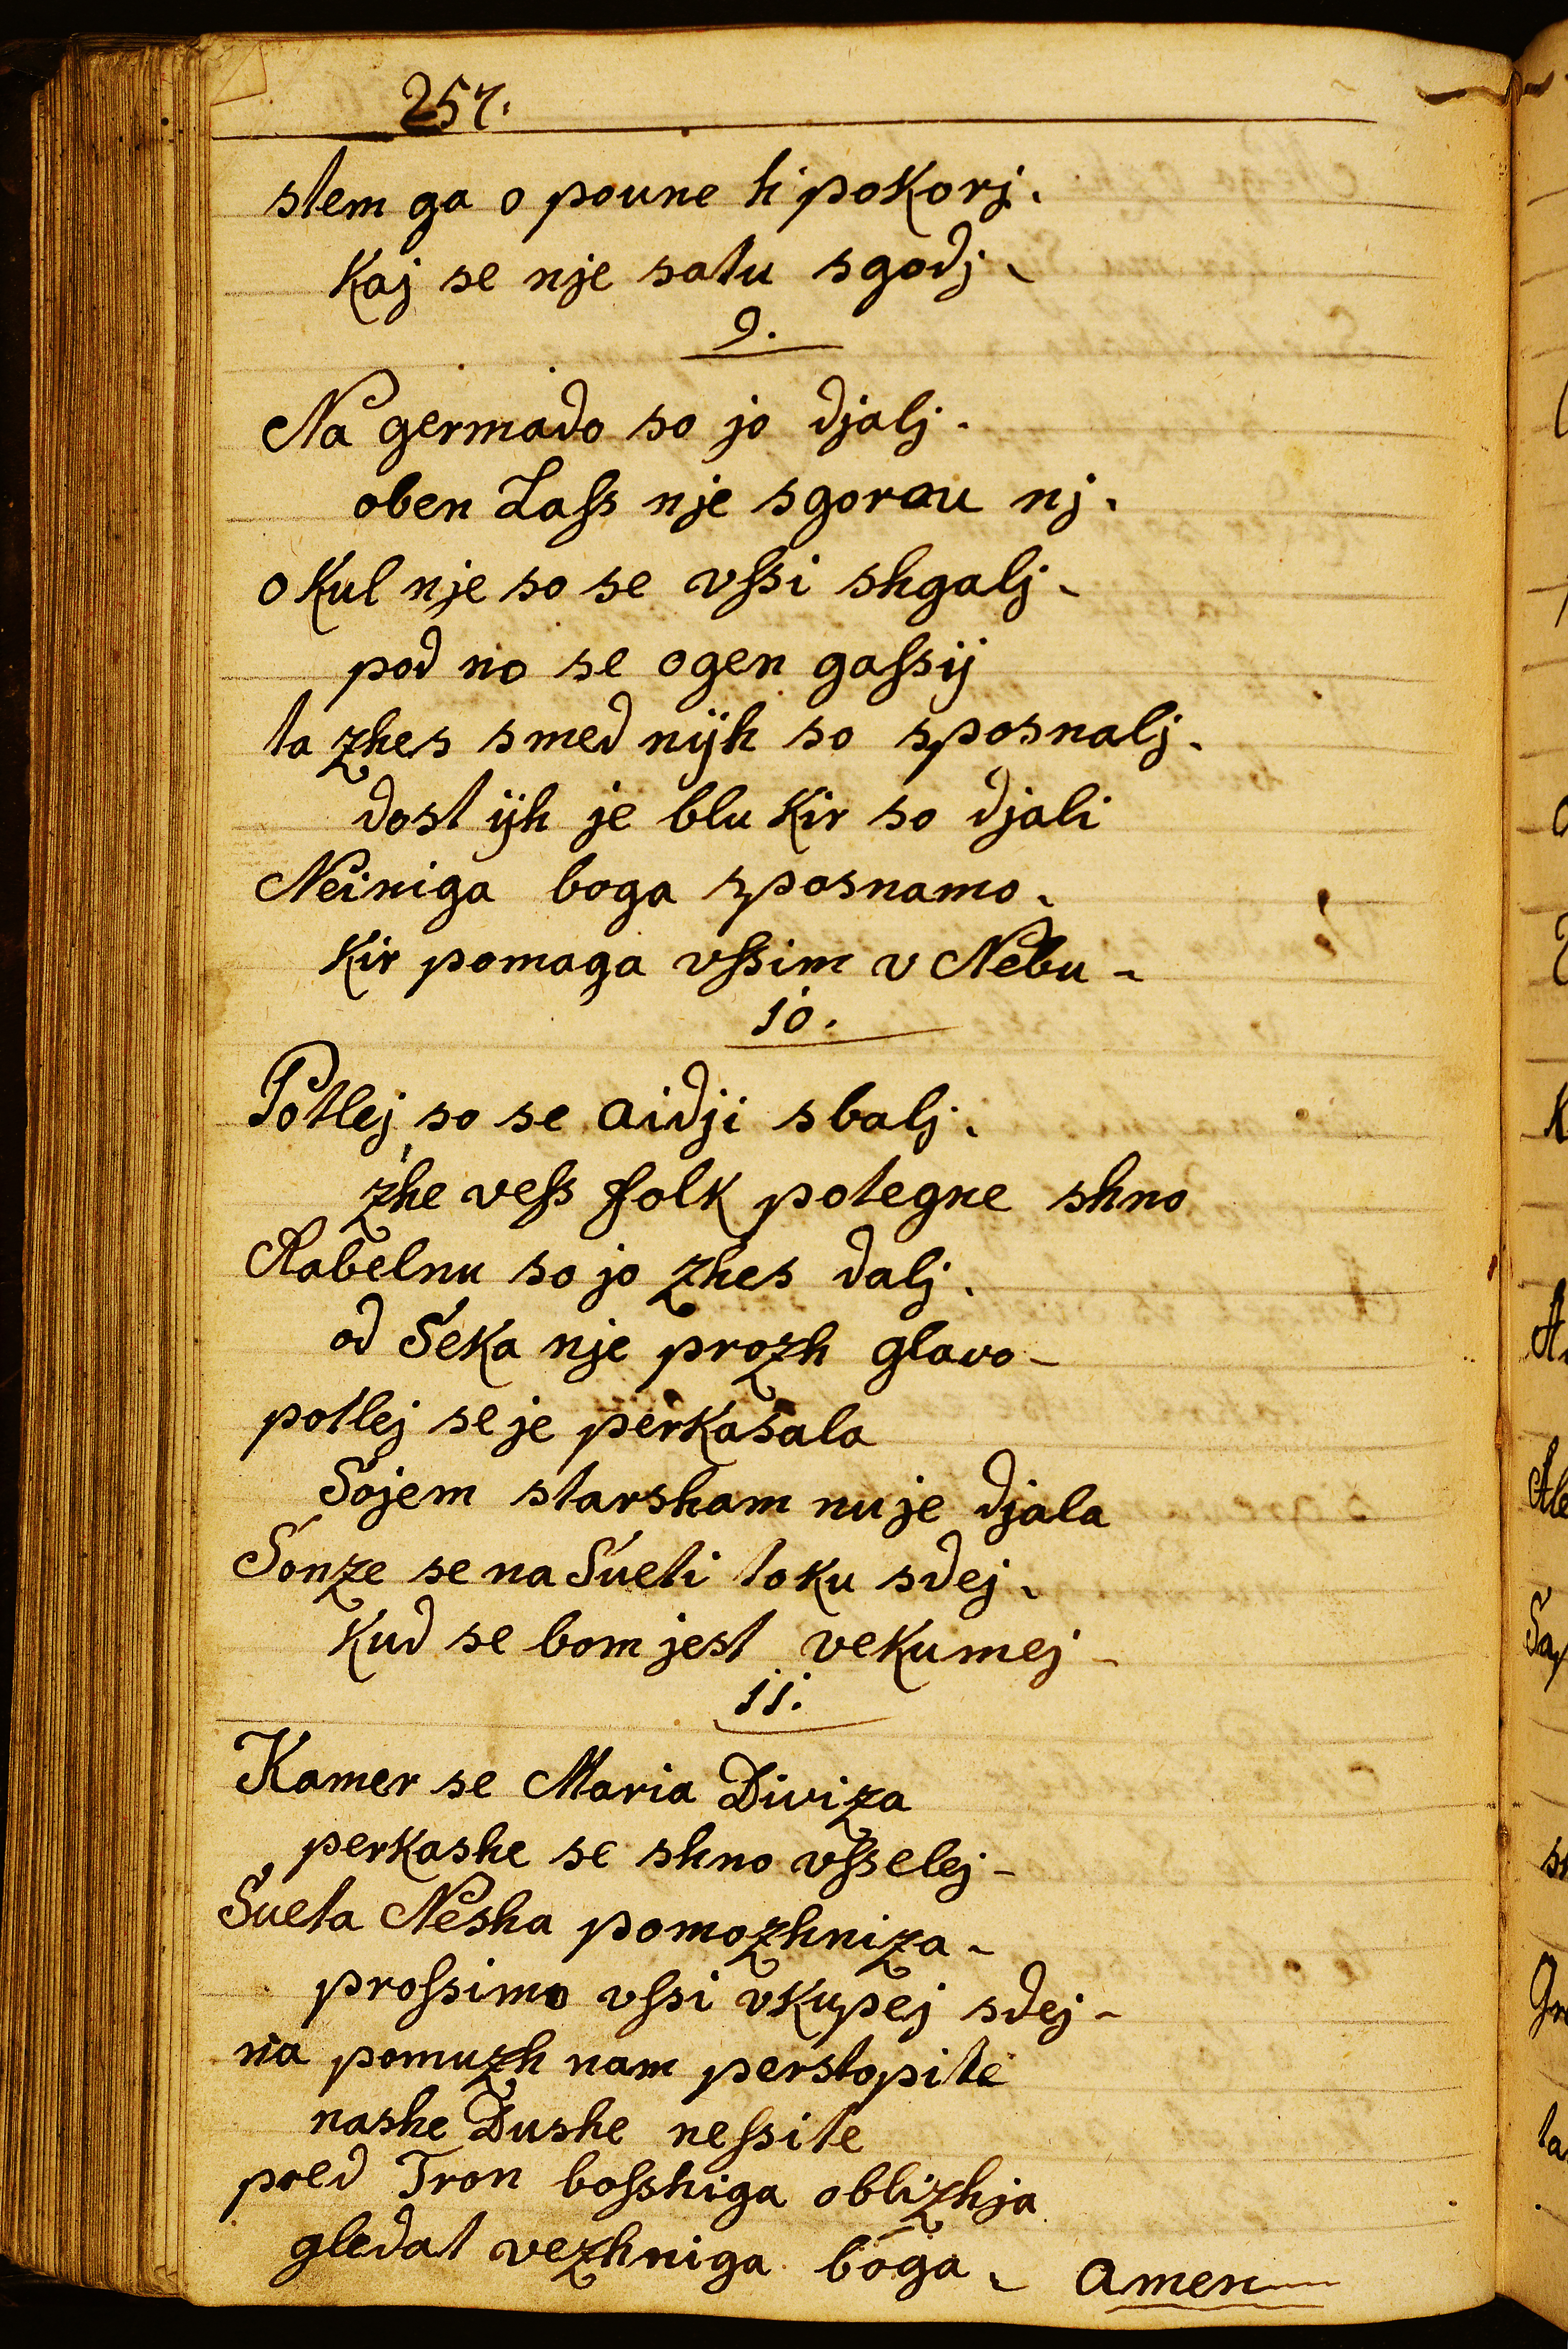 257.
stem ga o poune h' pokorj.
Kaj se nje satu sgodj.
9.
Na germado so jo djalj.
oben Lass nje sgorau nj.
okul nje so se vssi shgalj.
pod no se ogen gassij
ta zhes smed nijh so sposnalj.
dost ijh je blu Kir so djali
Neiniga boga sposnamo.
Kir pomaga vssim v Nebu -
10.
Potlej so se aidji sbalj.
zhe vess folk potegne shno
Rabelnu so jo zhes dalj.
od Seka nje prozh glavo -
potlej se je perkasala
Sojem starsham nu je djala
Sonze se na Sueti toku sdej.
Kud se bom jest vekumej -
11.
Kamer se Maria Diviza
perkashe se shno vsselej -
Sueta Nesha pomozhniza -
prossimo vssi vkupej sdej -
na pomuzh nam perstopite
nashe Dushe nessite
pred Tron bosshiga oblizhja
gledat vezhniga boga. amen